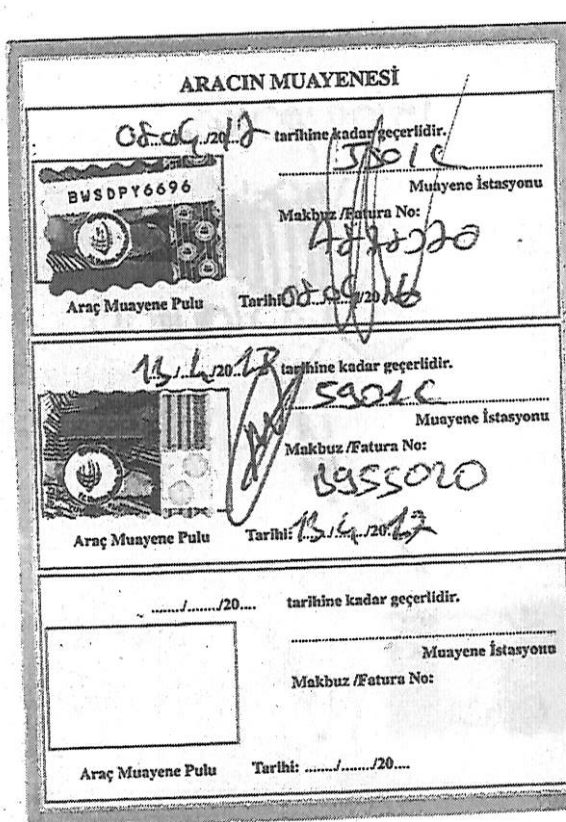 ARACIN MUAYENESİ
08.04./2017 tarihine kadar geçerlidir.
Muayene İstasyonu
BWSDPY6696
Makbuz /Fatura No:
Araç Muayene Pulu Tarihi 08.04/2016
13./4./2018 tarihine kadar geçerlidir.
5901C
Muayene İstasyonu
Makbuz /Fatura No:
3955020
Araç Muayene Pulu Tarihi: 13./4./2017
......../......../20.... tarihine kadar geçerlidir.
Muayene İstasyonu
Makbuz /Fatura No:
Araç Muayene Pulu Tarihi: ......../......../20....